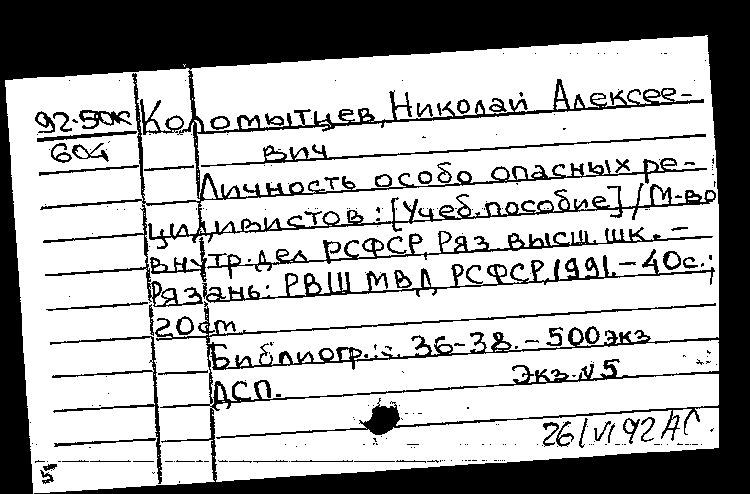 92-50к Коломытцев, Николай Алексее-
604 вич
Личность особо опасных ре-
цидивистов: [Учеб. пособие] / М-во
внутр. дел РСФСР, Ряз. высш. шк. -
Рязань: РВШ МВД РСФСР, 1991. - 40с.;
20 см.
Библиогр.: с. 36-38. - 500 экз
ДСП. Экз. N 5
26/VI 92
5